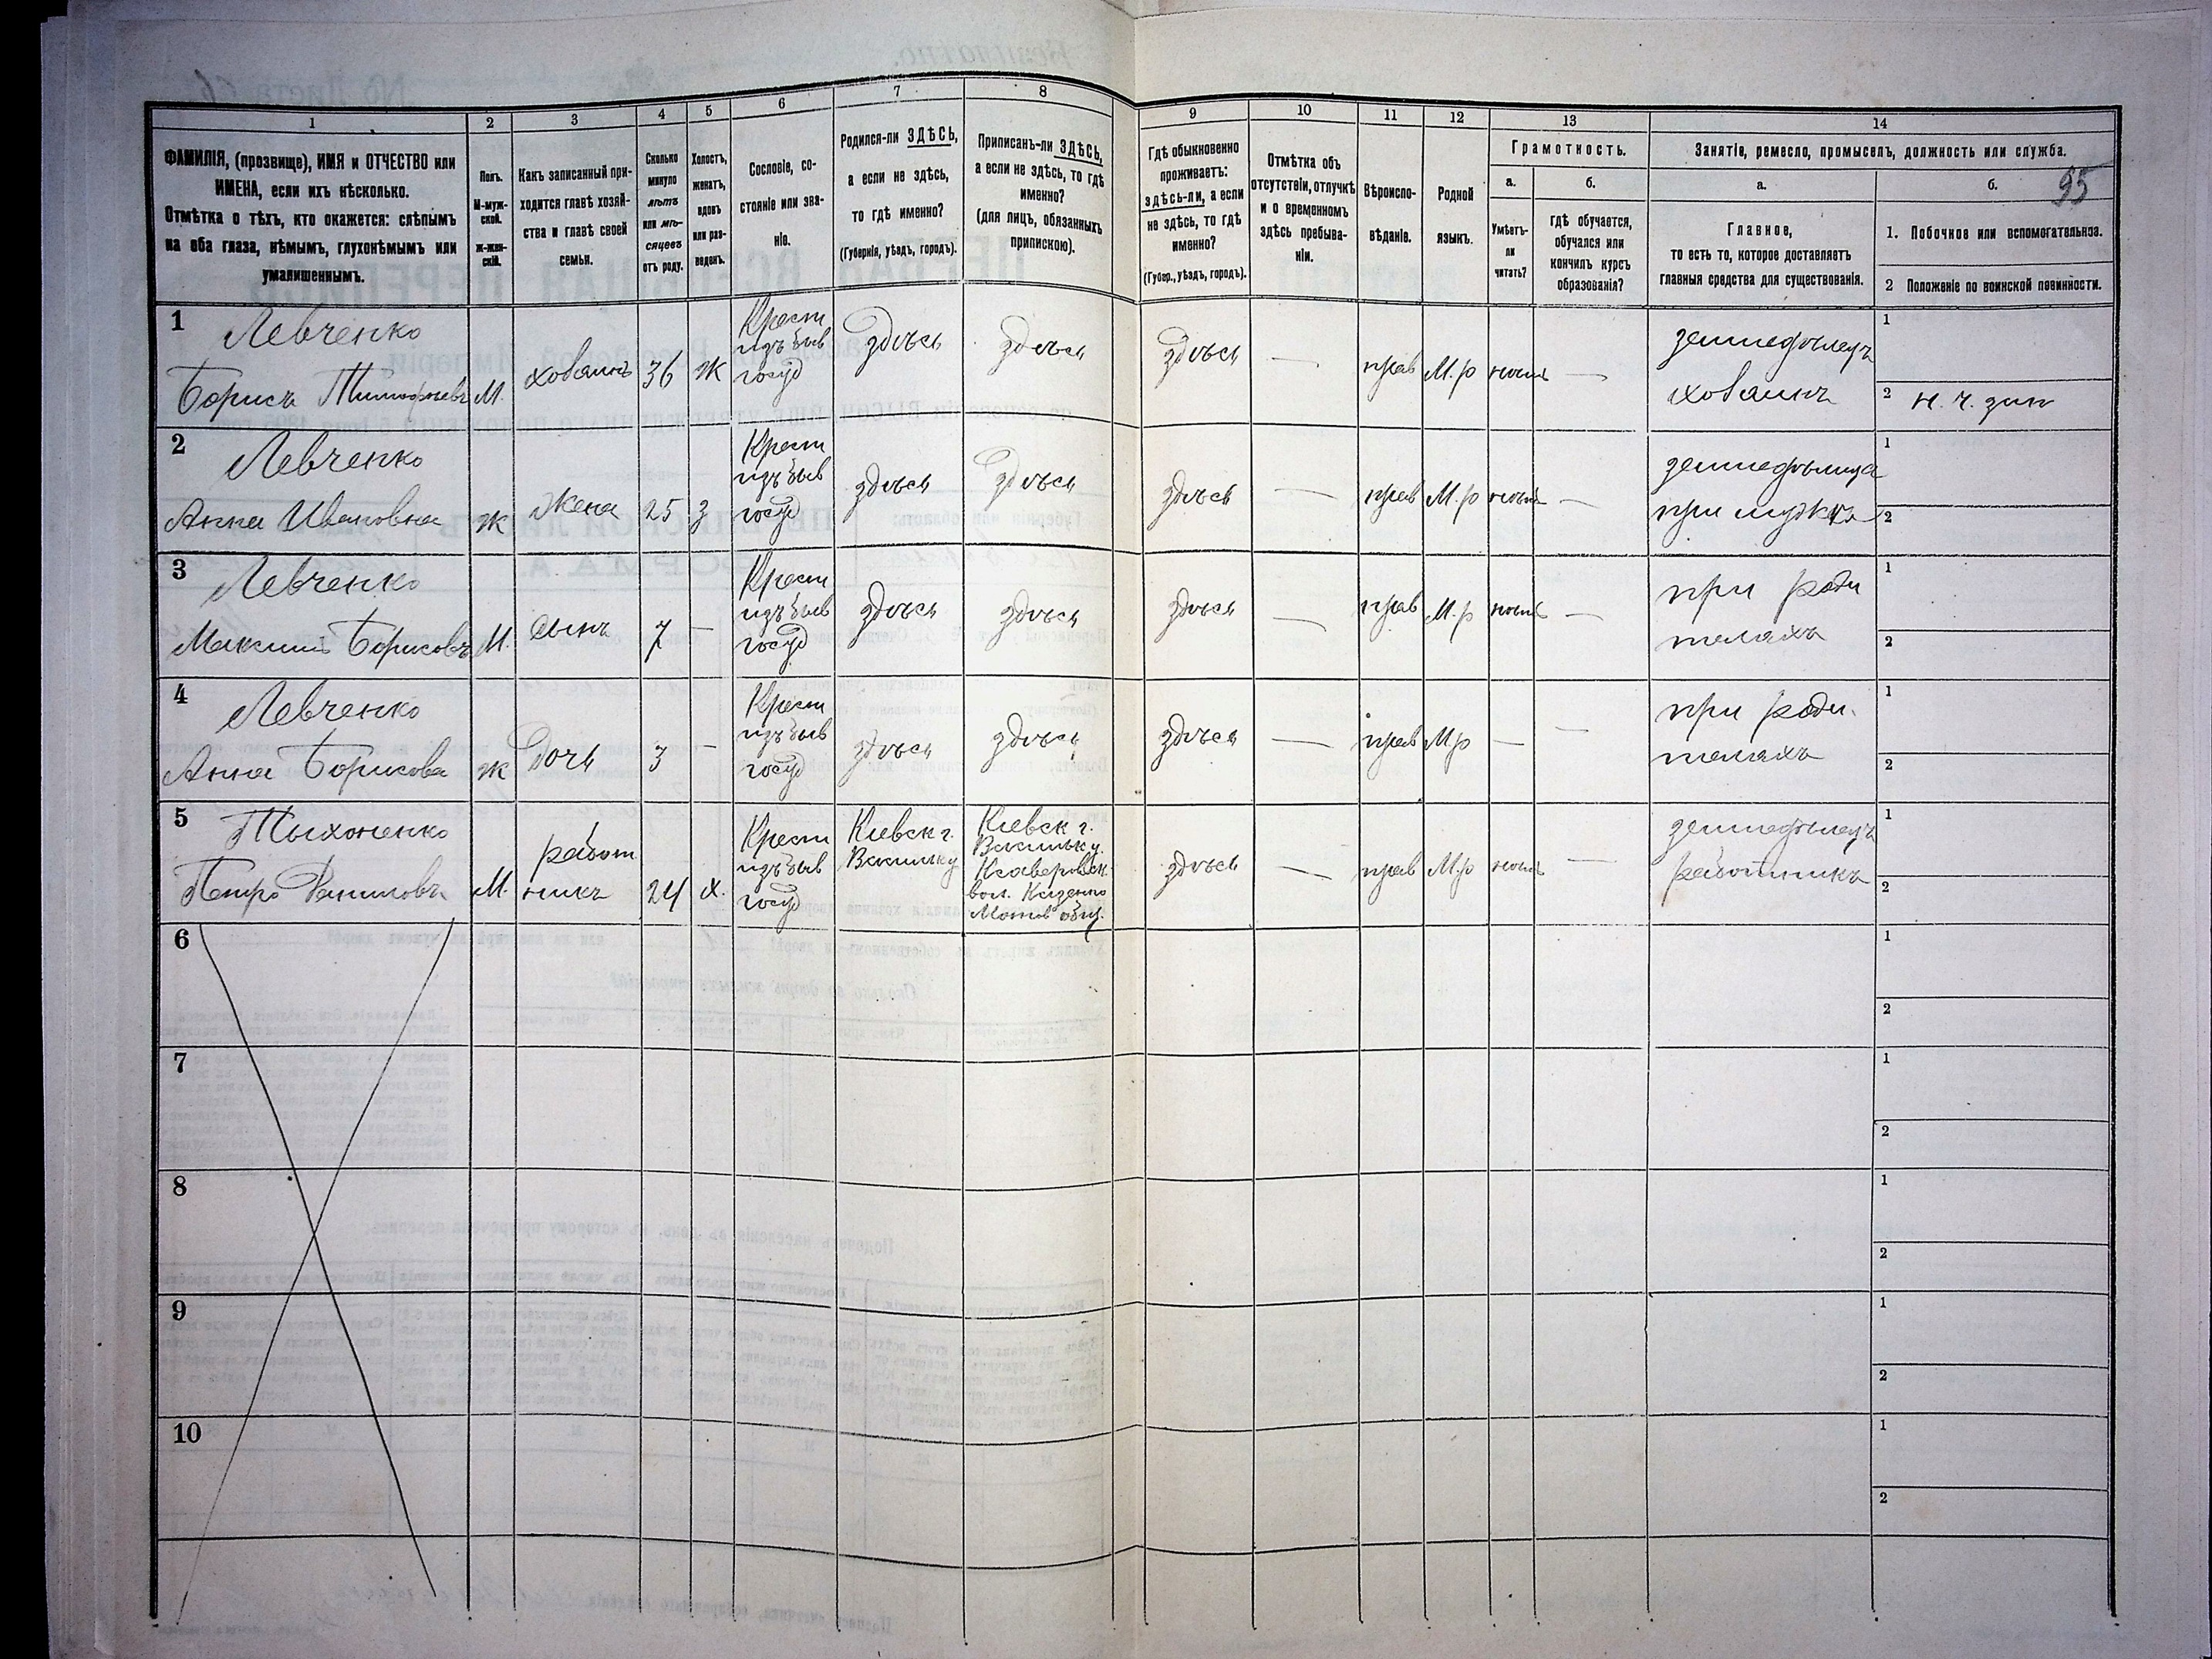 95
1 2 3 4 5 6 7 8 9 10 11 12 13 14
ФАМИЛІЯ, (прозвище), ИМЯ и ОТЧЕСТВО или
ИМЕНА, если ихъ нѣсколько.
Отмѣтка о тѣхъ, кто окажется: слѣпымъ
на оба глаза, нѣмымъ, глухонѣмымъ или
умалишеннымъ.
Полъ.
М-муж-
ской.
Ж-жен-
скій.
Какъ записанный при-
ходится главѣ хозяй-
ства и главѣ своей
семьи.
Сколько
минуло
лѣтъ
или мѣ-
сяцевъ
отъ роду.
Холостъ,
женатъ,
вдовъ
или раз-
веденъ.
Сословіе, со-
стояніе или зва-
ніе.
Родился-ли ЗДѢСЬ,
а если не здѣсь,
то гдѣ именно?
(Губернія, уѣздъ, городъ).
Приписанъ-ли ЗДѢСЬ,
а если не здѣсь, то гдѣ
именно?
(для лицъ, обязанныхъ
припискою).
Гдѣ обыкновенно
проживаетъ:
здѣсь-ли, а если
не здѣсь, то гдѣ
именно?
(Губер., уѣздъ, городъ).
Отмѣтка объ
отсутствіи, отлучкѣ
и о временномъ
здѣсь пребыва-
ніи.
Вѣроиспо-
вѣданіе.
Родной
языкъ.
Грамотность.
а.
Умѣетъ-
ли
читать?
б.
гдѣ обучается,
обучался или
кончилъ курсъ
образованія?
Занятіе, ремесло, промыселъ, должность или служба.
а.
Главное,
то есть то, которое доставляетъ
главныя средства для существованія.
б.
1. Побочное или вспомогательное.
2 Положеніе по воинской повинности.
1
Левченко
Борисъ Тимофѣевъ
М.
хозяинъ
36
Ж
Крест
изъ быв
госуд
здѣсь
здѣсь
здѣсь
—
прав
М.р
нѣтъ
—
земледѣлецъ
хозяинъ
1
2 н. ч. зап
2
Левченко
Анна Ивановна
Ж
Жена
25
З
Крест
изъ быв
госуд
здѣсь
здѣсь
здѣсь
—
прав
М.р
нѣтъ
—
земледѣлица
при мужѣ
1
2
3
Левченко
Максимъ Борисовъ
М.
Сынъ
7
—
Крест
изъ быв
госуд
здѣсь
здѣсь
здѣсь
—
прав
М.р
нѣтъ
—
при роди
теляхъ
1
2
4
Левченко
Анна Борисова
Ж
Дочь
3
—
Крест
изъ быв
госуд
здѣсь
здѣсь
здѣсь
—
прав
М р
—
—
при роди.
теляхъ
1
2
5
Тихоненко
Петръ Даниловъ
М.
работ
никъ
24
Х.
Крест
изъ быв
госуд
Кіевск г.
Васильк у
Кіевск г.
Васильк у.
Ксаверовск.
вол. Казенно
Мотов общ.
здѣсь
—
прав
М.р
нѣтъ
—
земледѣлецъ
работникъ
1
2
6
1
2
7
1
2
8
1
2
9
1
2
10
1
2